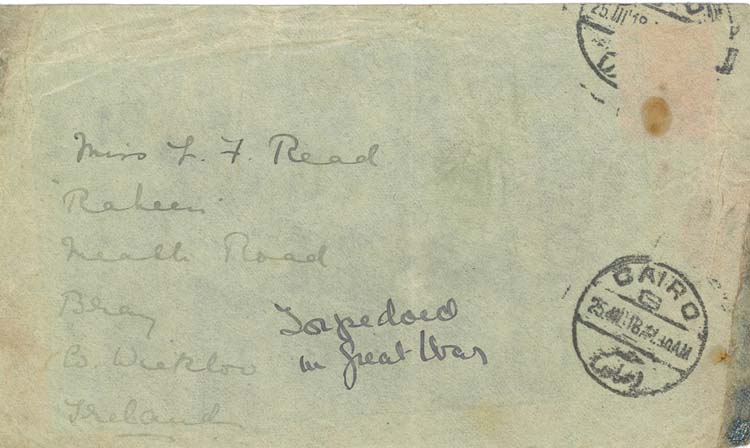 25.III.18
Miss L. F. Read
Raheen
Meath Road
Bray
Co Wicklow
Ireland
Torpedoed
in Great War
CAIRO
25.III.18